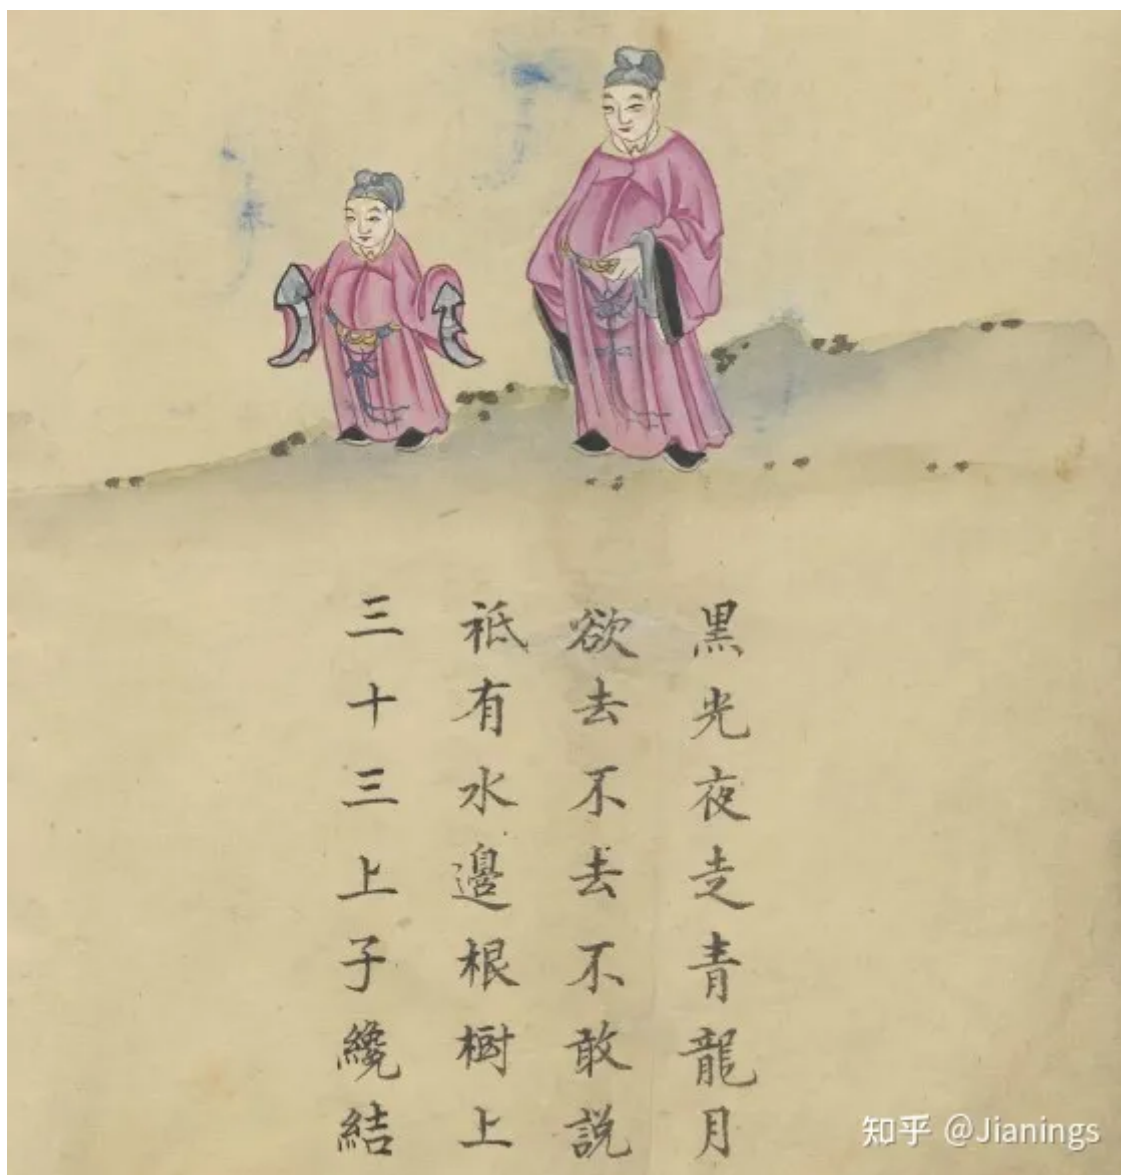 黑光夜走青龍月
欲去不去不敢説
祗有水邊根樹上
三十三上子纔結
知乎 @Jianings